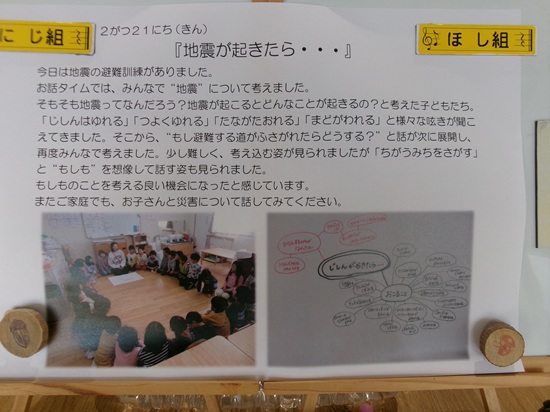 にじ組
２がつ２１にち（きん）
ほし組
『地震が起きたら・・・』
今日は地震の避難訓練がありました。
お話タイムでは、みんなで“地震”について考えました。
そもそも地震ってなんだろう？地震が起こるとどんなことが起きるの？と考えた子どもたち。
「じしんはゆれる」「つよくゆれる」「たながたおれる」「まどがわれる」と様々な呟きが聞こ
えてきました。そこから、“もし避難する道がふさがれたらどうする？”と話が次に展開し、
再度みんなで考えました。少し難しく、考え込む姿が見られましたが「ちがうみちをさがす」
と“もしも”を想像して話す姿も見られました。
もしものことを考える良い機会になったと感じています。
またご家庭でも、お子さんと災害について話してみてください。
じしんがおきたら
おこること